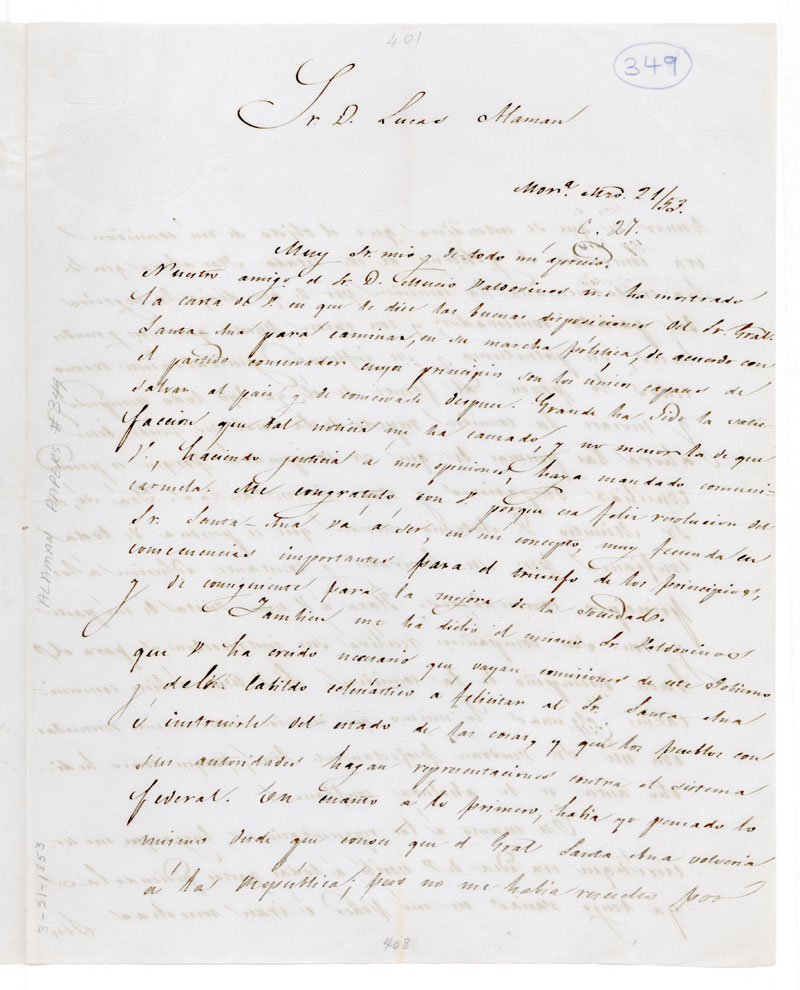 401
349
Sr. D. Lucas Alaman
Morª. Mzo. 21/53.
C. 27.
Muy Sr. mio y de todo mi aprecio.
Nuestro amigo el Sr. D. Mucio Valdovinos me ha mostrado
la carta de V. en que le dice las buenas disposiciones del Sr. Gral.
Santa-Ana para caminar, en su marcha política, de acuerdo con
el partido conservador cuyos principios son los únicos capaces de
salvar al pais y de conservarle despues. Grande ha sido la satis-
faccion que tal noticia me ha causado, y no menor la de que
V., haciendo justicia á mis opiniones, haya mandado comuni-
carmela. Me congratulo con V. porque esa feliz resolucion del
Sr. Santa-Ana vá á ser, en mi concepto, muy fecunda en
consecuencias importantes para el triunfo de los principios,
y de consiguiente para la mejora de la sociedad.
Tambien me ha dicho el mismo Sr. Valdovinos
que V. ha creido necesario que vayan comisiones de este Gobierno
y del Cabildo eclesiástico á felicitar al Sr. Santa Ana
é instruirle del estado de las cosas, y que los pueblos con
sus autoridades hagan representaciones contra el sistema
federal. En cuanto a lo primero, habia yo pensado lo
mismo desde que conocí que el Gral Santa Ana volveria
á la República; pero no me habia resuelto por
408
ALAMAN PAPERS #349
3-21-1853